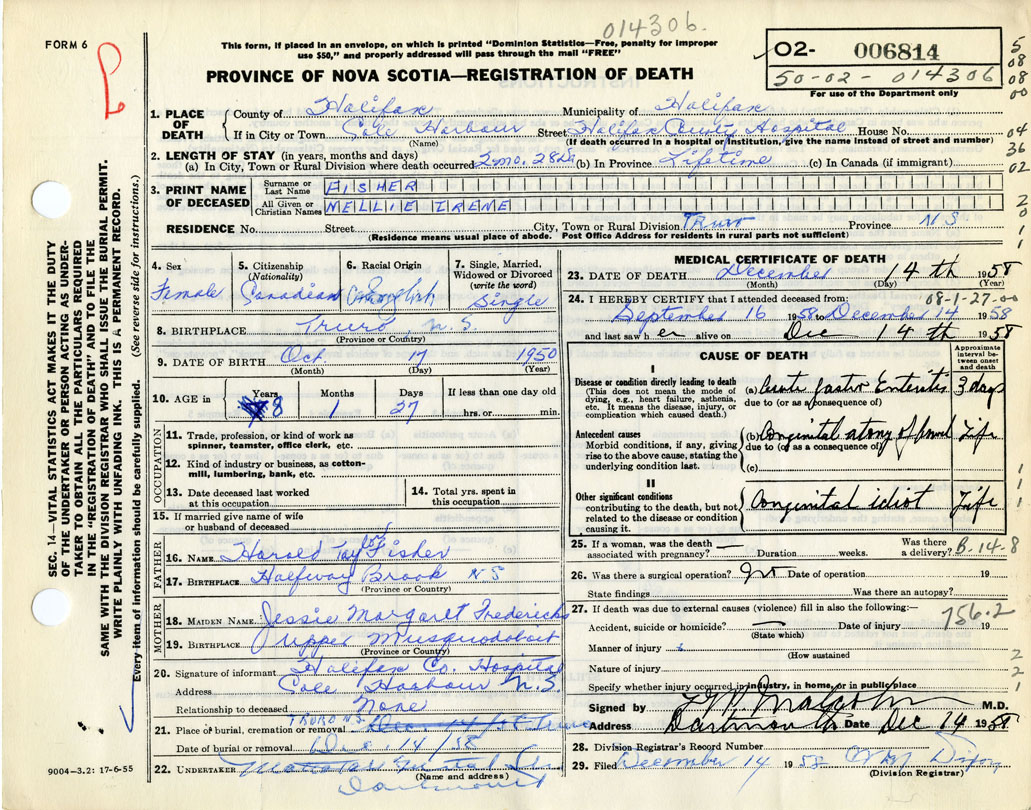 014306.
FORM 6
This form, if placed in an envelope, on which is printed "Dominion Statistics—Free, penalty for improper
use $50," and properly addressed will pass through the mail "FREE"
O2- 006814
50-02- 014306
For use of the Department only
5
08
08
00
04
36
02
2
0
1
1
PROVINCE OF NOVA SCOTIA—REGISTRATION OF DEATH
1. PLACE OF DEATH
County of Halifax Municipality of Halifax
If in City or Town Cole Harbour Street Halifax County Hospital House No.
(Name) (If death occurred in a hospital or institution, give the name instead of street and number)
2. LENGTH OF STAY (in years, months and days)
(a) In City, Town or Rural Division where death occurred 2 mo. 28ds (b) In Province Lifetime (c) In Canada (if immigrant)
3. PRINT NAME OF DECEASED
Surname or Last Name FISHER
All Given or Christian Names NELLIE IRENE
RESIDENCE No. Street City, Town or Rural Division Truro Province N S
(Residence means usual place of abode. Post Office Address for residents in rural parts not sufficient)
4. Sex
Female
5. Citizenship
(Nationality)
Canadian
6. Racial Origin
English
7. Single, Married, Widowed or Divorced
(write the word)
Single
8. BIRTHPLACE Truro, N.S.
(Province or Country)
9. DATE OF BIRTH Oct 17 1950
(Month) (Day) (Year)
10. AGE in Years Months Days If less than one day old
8 1 27 hrs. or min.
OCCUPATION
11. Trade, profession, or kind of work as
spinner, teamster, office clerk, etc.
12. Kind of industry or business, as cotton-
mill, lumbering, bank, etc.
13. Date deceased last worked
at this occupation
14. Total yrs. spent in
this occupation
15. If married give name of wife
or husband of deceased
FATHER
16. NAME Harold Taylor Fisher
17. BIRTHPLACE Halfway Brook N S
(Province or Country)
MOTHER
18. MAIDEN NAME: Jessie Margaret Fredericks
19. BIRTHPLACE Upper Musquodoboit
(Province or Country)
20. Signature of informant Halifax Co. Hospital
Address Cole Harbour N.S.
Relationship to deceased None
21. Place of burial, cremation or removal TRURO N.S. Dec 14
Date of burial or removal Dec. 14/58
22. UNDERTAKER
(Name and address)
Dartmouth
9004—3.2: 17-6-55
SEC. 14—VITAL STATISTICS ACT MAKES IT THE DUTY
OF THE UNDERTAKER OR PERSON ACTING AS UNDER-
TAKER TO OBTAIN ALL THE PARTICULARS REQUIRED
IN THE "REGISTRATION OF DEATH" AND TO FILE THE
SAME WITH THE DIVISION REGISTRAR WHO SHALL ISSUE THE BURIAL PERMIT.
WRITE PLAINLY WITH UNFADING INK. THIS IS A PERMANENT RECORD.
Every item of information should be carefully supplied. (See reverse side for instructions.)
MEDICAL CERTIFICATE OF DEATH
23. DATE OF DEATH December 14th 1958
(Month) (Day) (Year)
24. I HEREBY CERTIFY that I attended deceased from: 08-1-27-00
September 16 1958 to December 14 1958
and last saw h er alive on Dec 14th 1958
CAUSE OF DEATH
Approximate interval between onset and death
I
Disease or condition directly leading to death
(This does not mean the mode of
dying, e.g., heart failure, asthenia,
etc. It means the disease, injury, or
complication which caused death.)
(a) Acute gastro Enteritis 3 days
due to (or as a consequence of)
Antecedent causes
Morbid conditions, if any, giving
rise to the above cause, stating the
underlying condition last.
(b) Congenital atony of bowel Life
due to (or as a consequence of)
(c)
II
Other significant conditions
contributing to the death, but not
related to the disease or condition
causing it.
Congenital idiot Life
1
1
1
1
25. If a woman, was the death
associated with pregnancy? Duration weeks. Was there a delivery? B-14-8
26. Was there a surgical operation? No Date of operation 19
State findings Was there an autopsy?
27. If death was due to external causes (violence) fill in also the following:—
756.2
Accident, suicide or homicide? Date of injury 19
(State which)
Manner of injury
(How sustained
Nature of injury
Specify whether injury occurred in industry, in home, or in public place
2
2
1
Signed by M.D.
Address Dartmouth Date Dec 14 1958
28. Division Registrar's Record Number
29. Filed December 14 1958 Dixon
(Division Registrar)